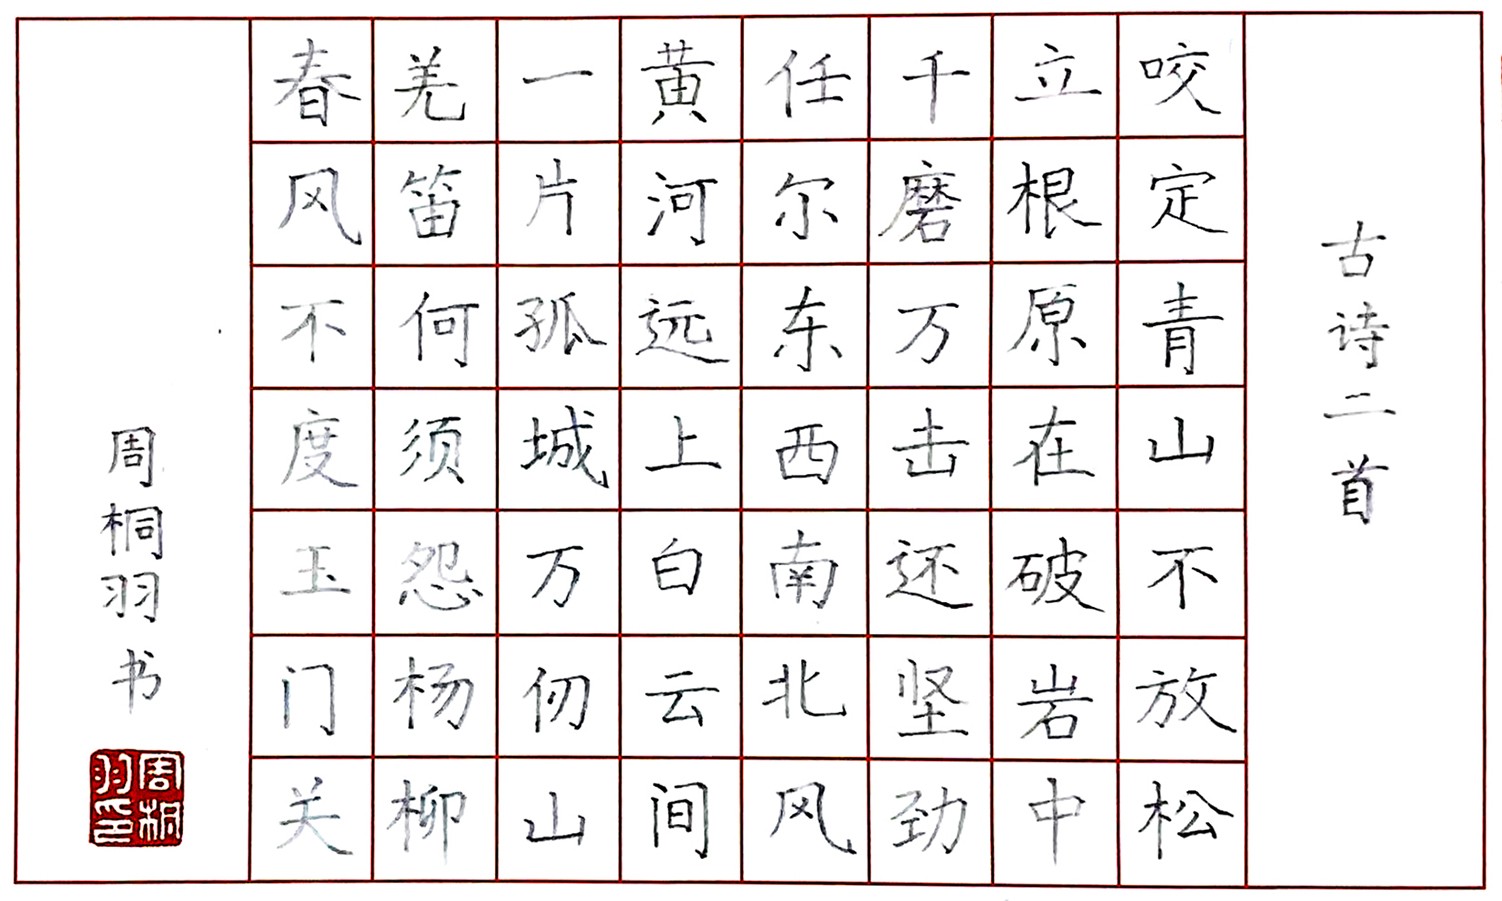 古诗二首
咬定青山不放松
立根原在破岩中
千磨万击还坚劲
任尔东西南北风
黄河远上白云间
一片孤城万仞山
羌笛何须怨杨柳
春风不度玉门关
周桐羽书
周桐羽印